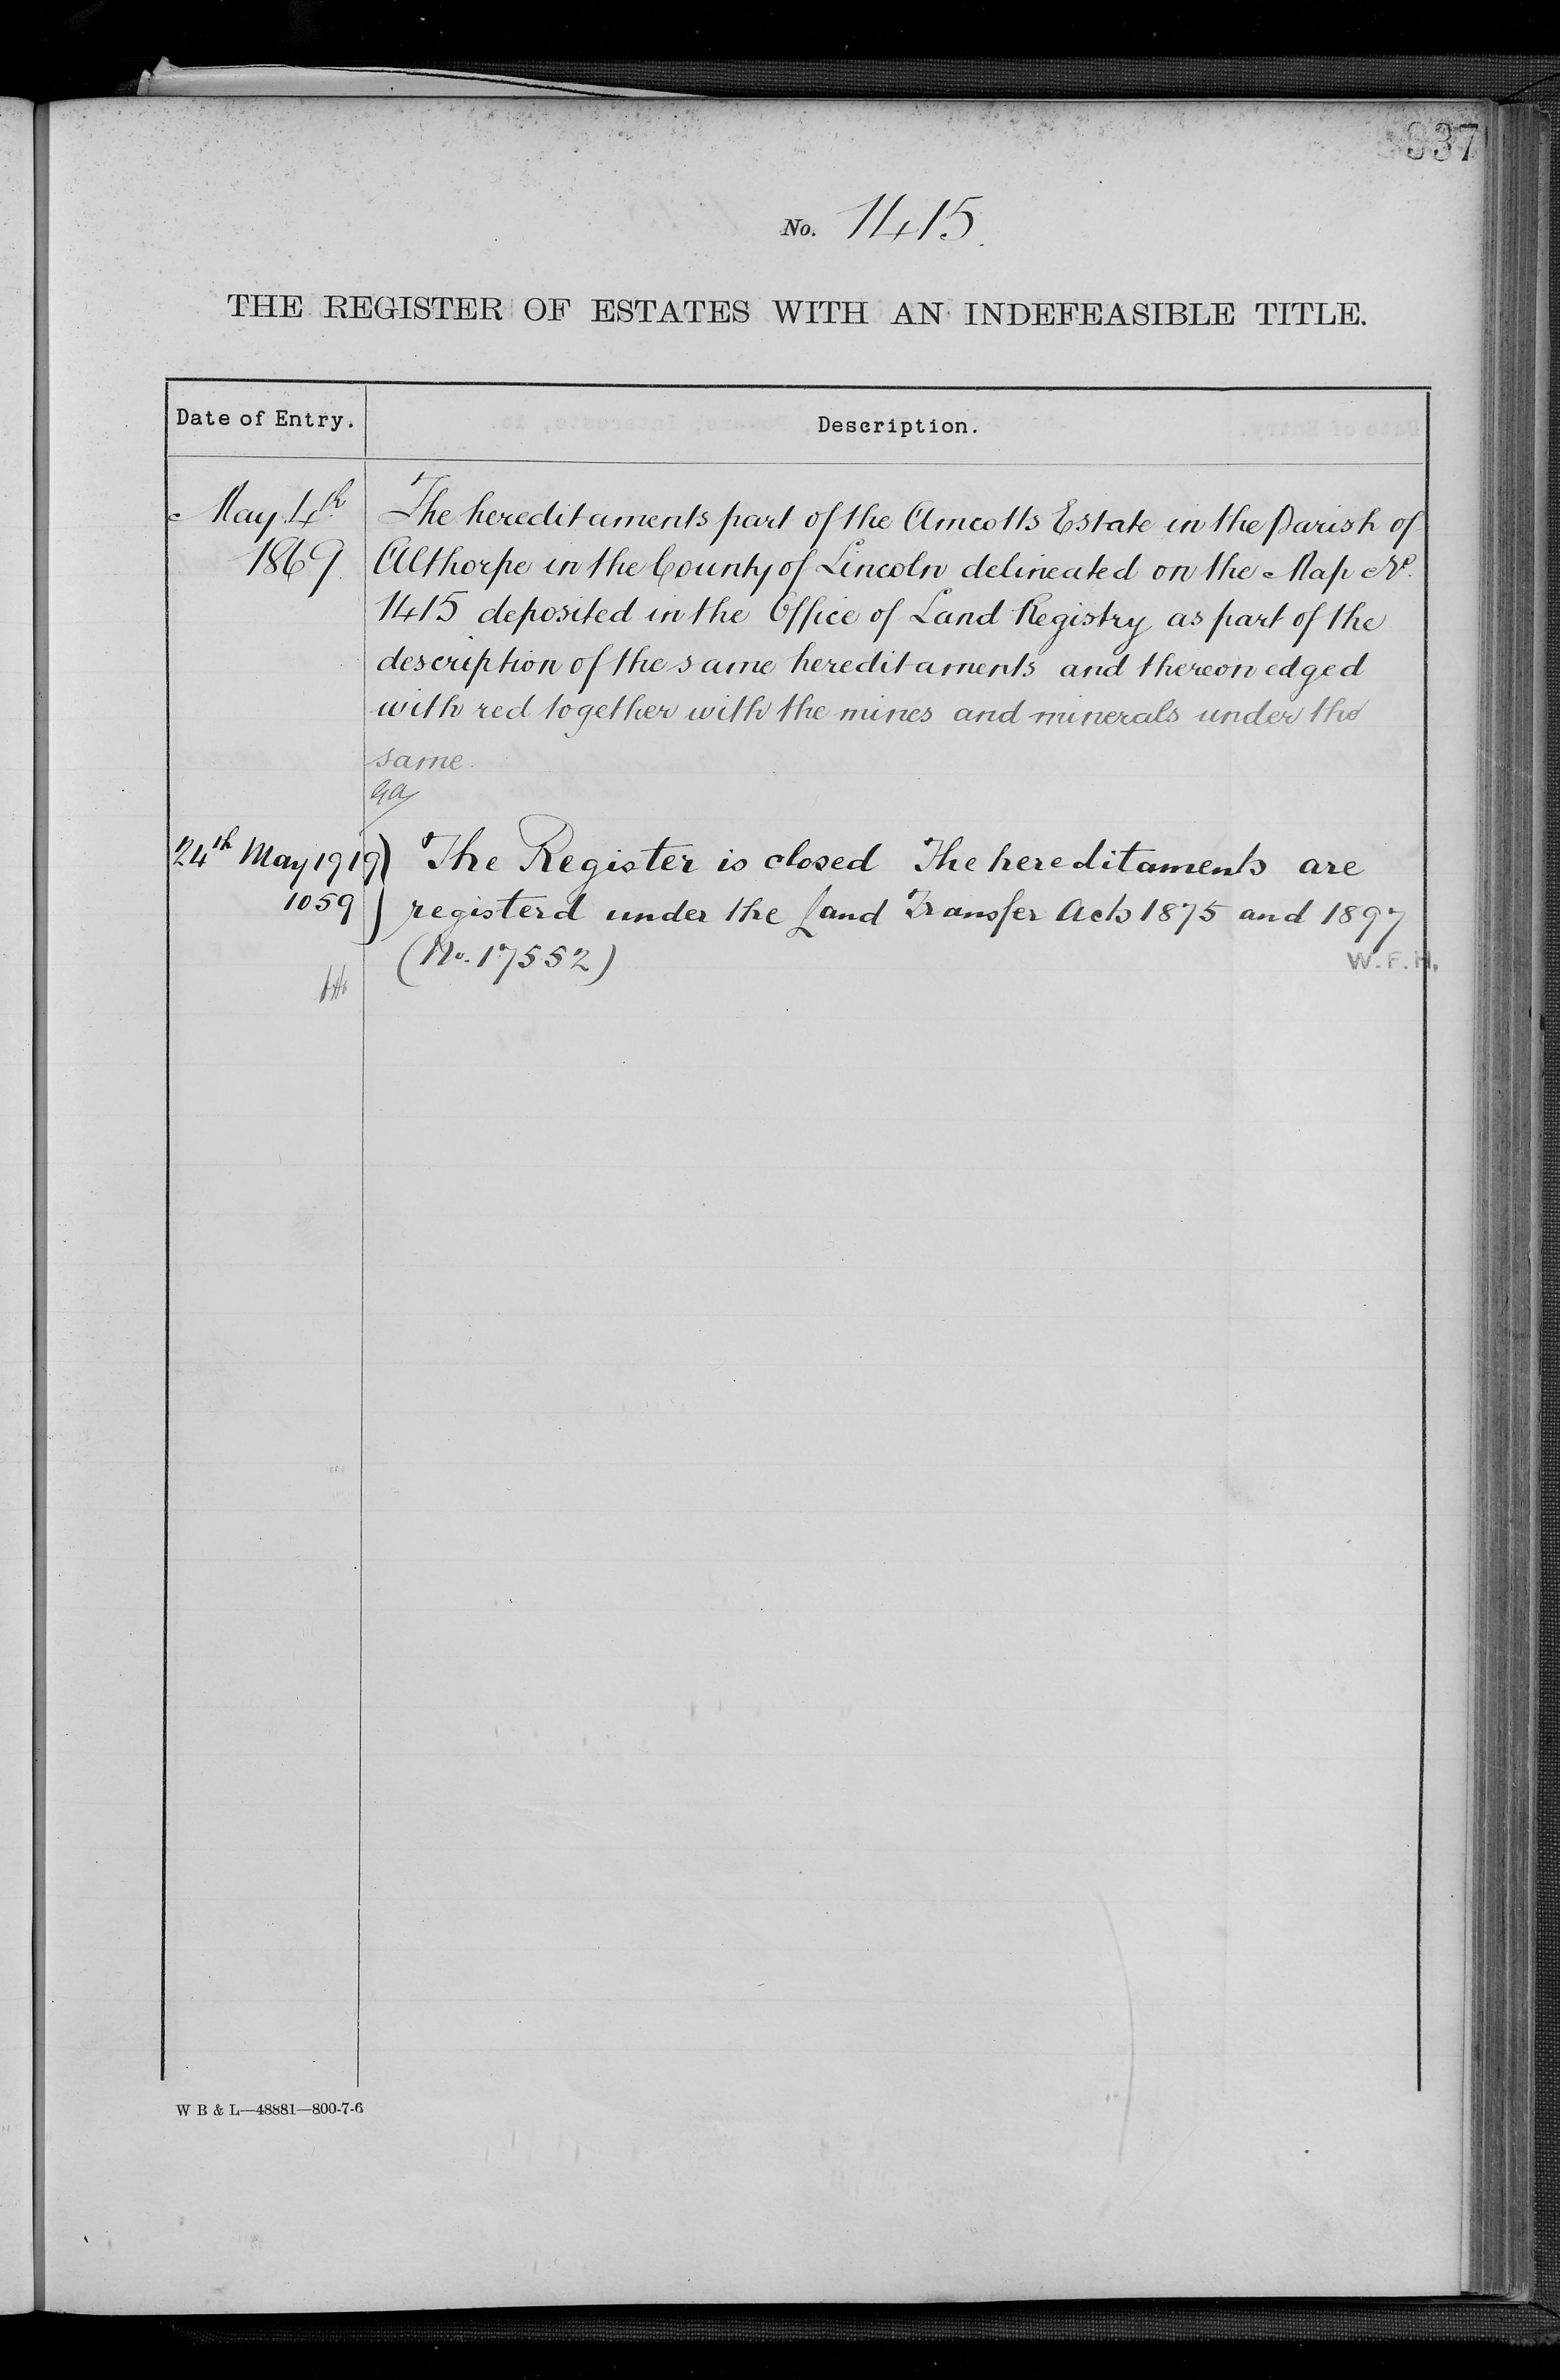 337
No. 1415.
THE REGISTER OF ESTATES WITH AN INDEFEASIBLE TITLE.
Date of Entry.
Description.
May 4th
1869.
The hereditaments part of the Amcotts Estate in the Parish of
Althorpe in the County of Lincoln delineated on the Map No.
1415 deposited in the Office of Land Registry as part of the
description of the same hereditaments and thereon edged
with red together with the mines and minerals under the
same.
24th May 1919
1059
The Register is closed The hereditaments are
registerd under the Land Transfer Acts 1875 and 1897
(No. 17552)
W.F.H.
W B & L—48881—800-7-6